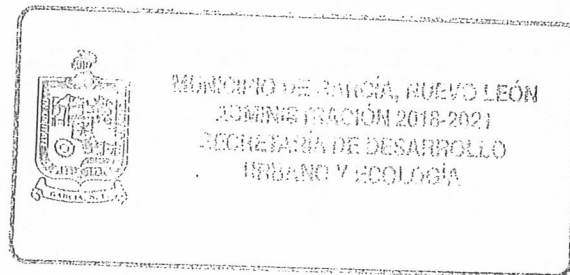 MUNICIPIO DE GARCÍA, NUEVO LEÓN
ADMINISTRACIÓN 2018-2021
SECRETARÍA DE DESARROLLO
URBANO Y ECOLOGÍA
GARCIA, N. L.